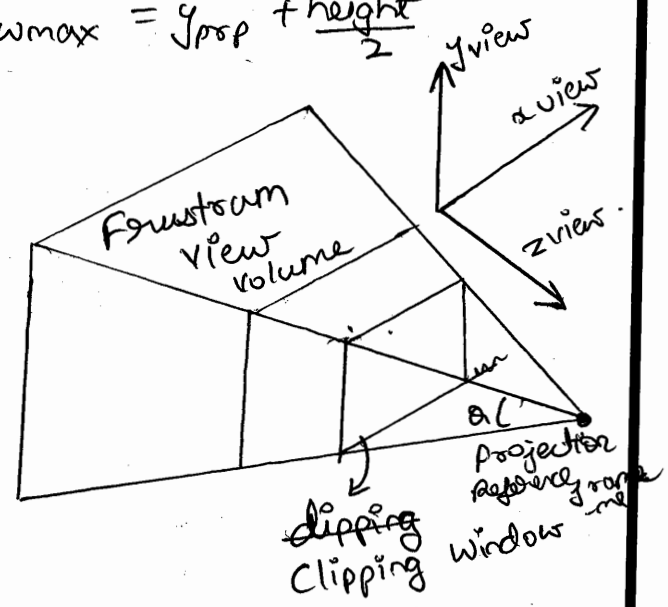 wmax = yprp + height/2
yview
x view
z view.
Frustram
view
volume
θ
projection
Reference frame
dipping
Clipping window